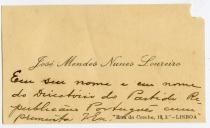 José Mendes Nunes Loureiro
Em seu nome e em nome
do Directorio do Partido Re-
publicano Português cum-
primenta V. Ex.
Rua do Crucho, 18, 2.º — LISBOA